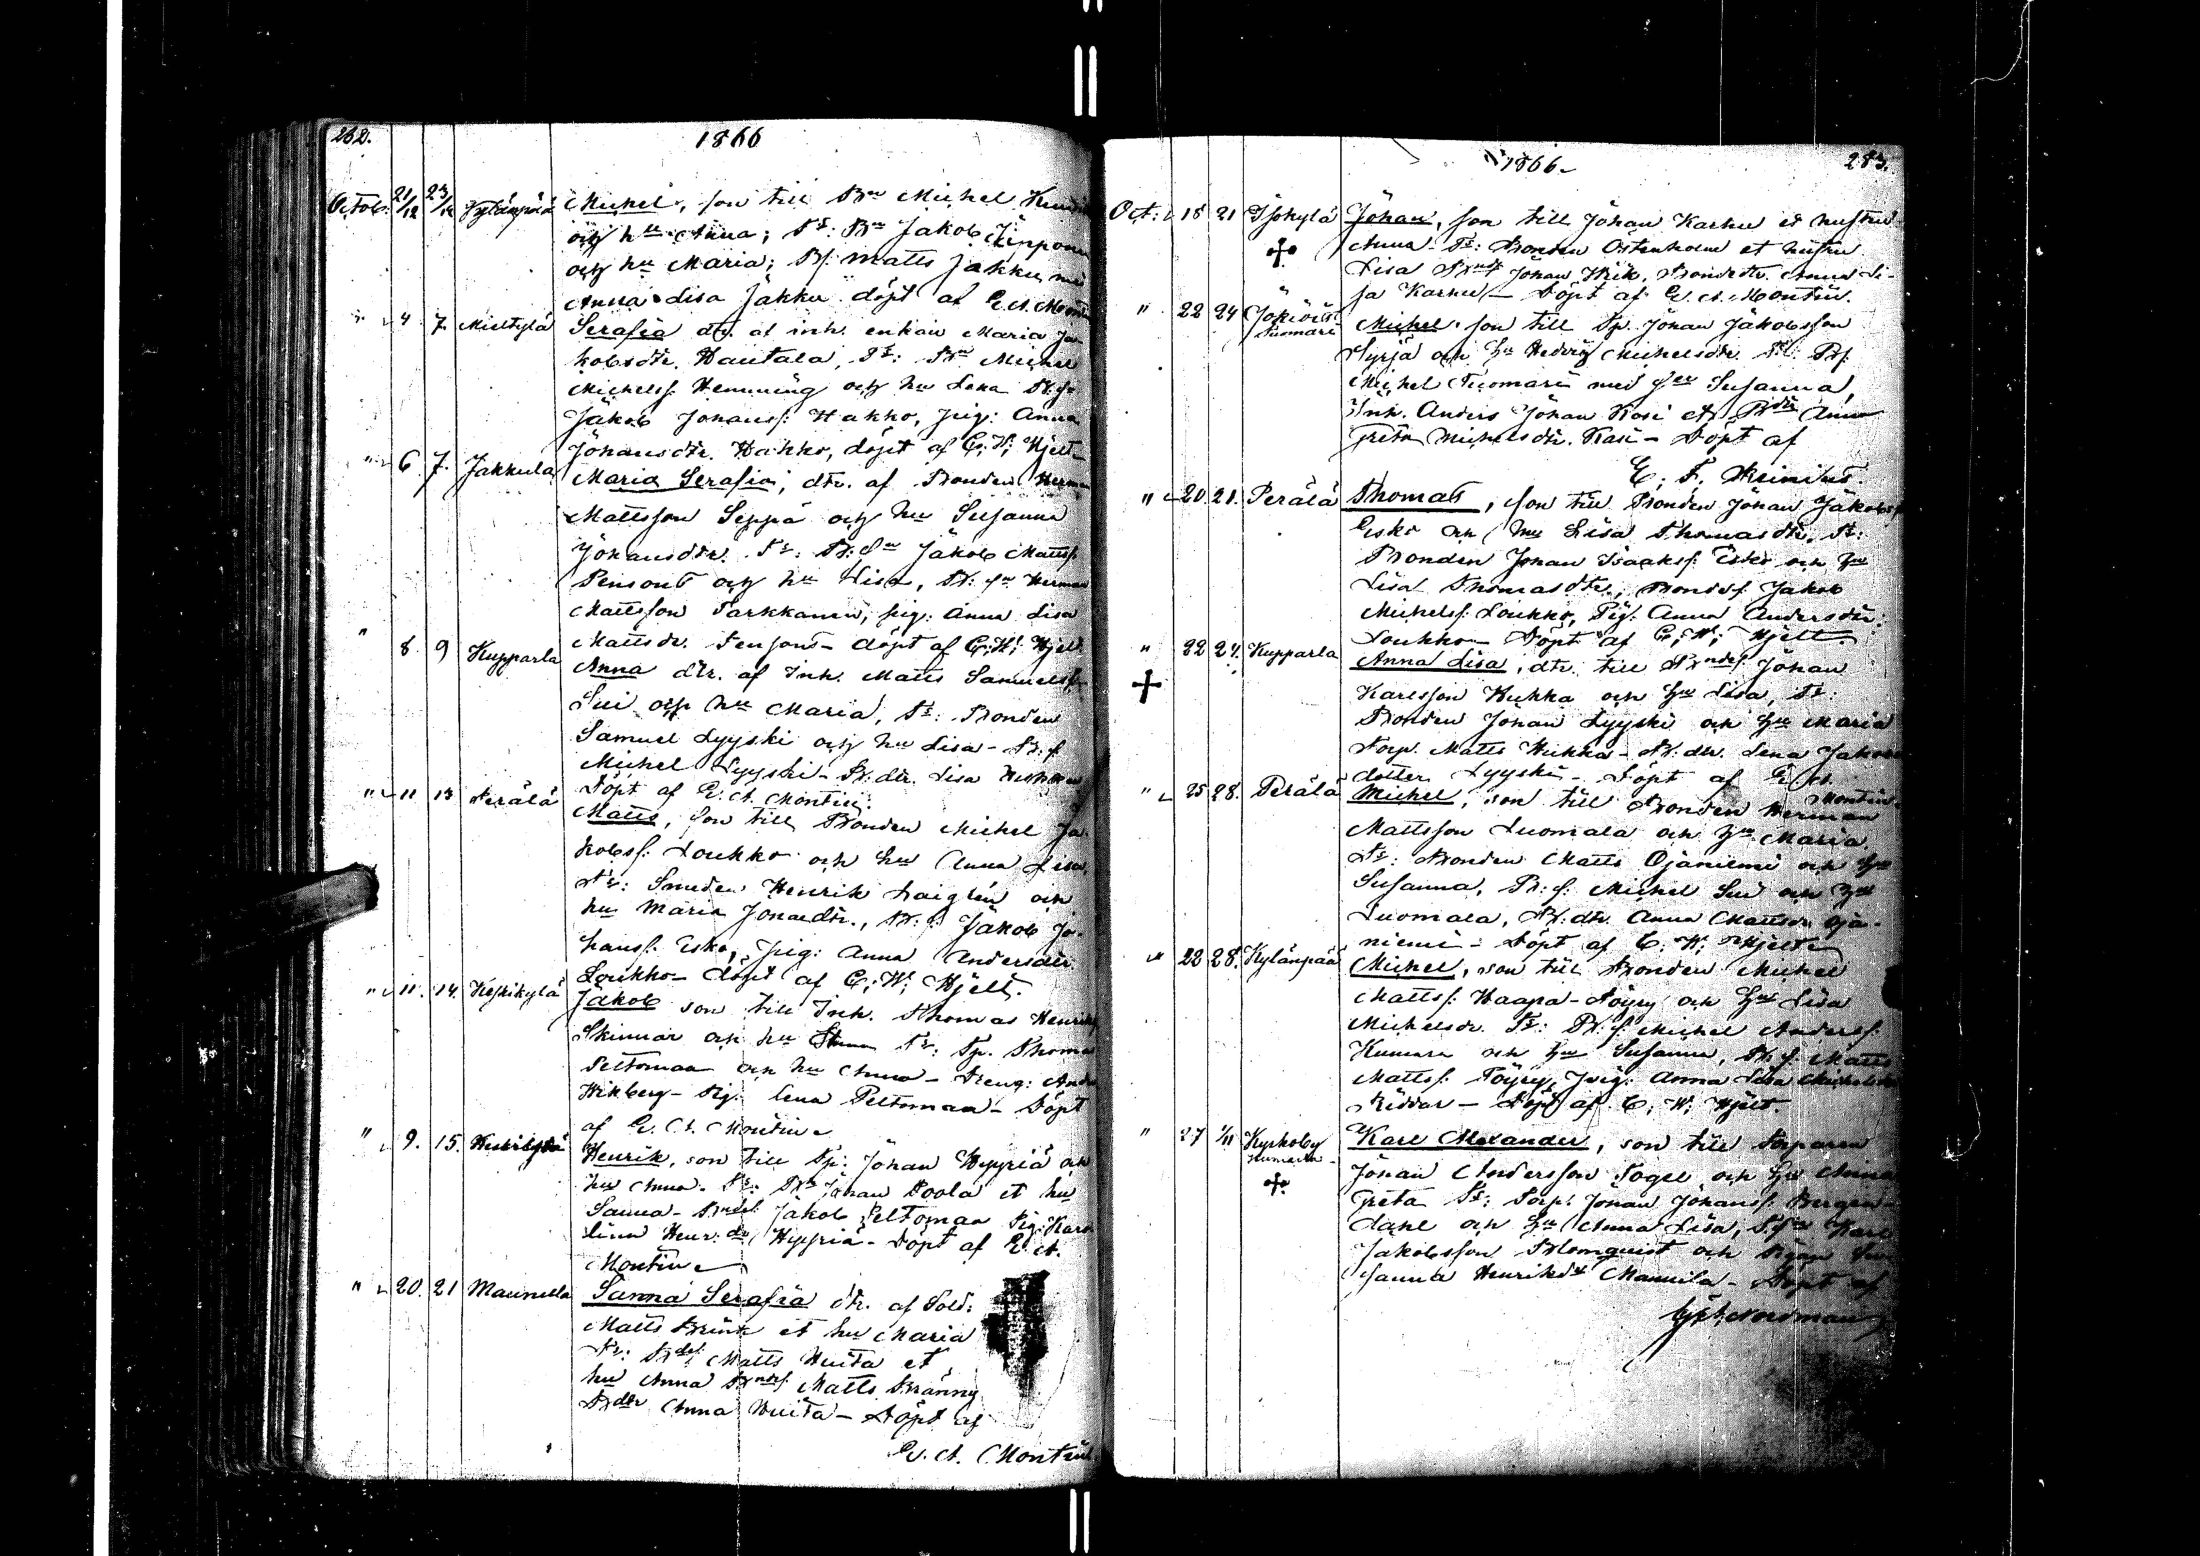 282.
1866
Octob. 21/12 23/12 Kylänpää Michel, son till Bn Michel
och hu Anna; Ts: Bn Jakob
och hu Maria; Bs. Matts Jakku med
Anna Lisa Jakku döpt af E. A. Montin
" 4 7. Mieltylä Serafia dtr. af inh. enkan Maria Ja-
kobsdtr. Hautala, Ts: Bn Michel
Michelss. Hemming och hu Lena
Jakob Johanss. Hakko, pig: Anna
Johansdtr. Hakko, döpt af C; W; Hjelt
" 6 7. Jakkula Maria Serafia, dtr. af Bonden Herman
Mattsson Seppä och hu Susanna
Johansdtr. Ts: Jakob Mattss.
Pensons och hu Lisa, Herman
Mattsson Parkkanen, pig: Anna Lisa
Mattsdr. Pensons - döpt af C; W; Hjelt
" 8 9 Kupparla Anna dtr. af Inh. Matts Samuelss.
Sui och hu Maria, Ts: Bonden
Samuel Lyyski och hu Lisa - B. s.
Michel Lyyski - B: dtr. Lisa
Döpt af E. A. Montin.
" 11 13 Perälä Matts, son till Bonden Michel Ja-
kobss: Loukko och hu Anna Lisa,
Ts: Smeden Henrik och
hu Maria Jonaedtr., B. s: Jakob Jo-
hanss: Esko, pig: Anna Andersdtr
Loukko - döpt af C; W; Hjelt.
" 11. 14. Keskikylä Jakob son till Inh. Thomas Henriks
Skinnar och hu Ts: Tp. Thomas
Peltomaa och hu Anna - Dreng:
Wikberg - Pig. Lena Peltomaa - Döpt
af E. A. Montin
" 9. 15. Keskikylä Henrik, son till Tp: Johan Hyyriä och
hu Anna. Ts: Bn Johan Poola et hu
Sanna - Bndes. Jakob Peltomaa Pig: Karo-
lina Henr: dr Hyyriä - Döpt af E. A.
Montin
" 20. 21 Maunula Sanna Serafia dtr. af Sold:
Matts et hu Maria
Ts: Matts Huita et
hu Anna Bndes. Matts Bränny
Bdtr Anna Huita - Döpt af
E. A. Montin
1866. 283.
Oct: 18 21 Ojakylä Johan, son till Johan Karhu et hustru
Anna - Ts: Bonden Ostenholm et hustru
Lisa Johan Wik, Bondedtr. Anna Li-
sa Karhu - Döpt af E. A. Montin.
" 22 24 Jokiöis Michel, son till Tp. Johan Jakobsson
Tuomari
Syrjä och hu Hedvig Michelsdtr. Ts: Bs.
Michel Tuomari med hu Susanna,
Inh. Anders Johan Kasi et Bdtr Anna
Greta Michelsdtr. Kasi - Döpt af
E. F. Reinius.
" 20. 21. Perälä Thomas, son till Bonden Johan Jakobss.
Esko och hu Lisa Thomasdtr, Ts:
Bonden Johan Isaakss. Esko och hu
Lisa Thomasdtr., Bondes. Jakob
Michelss: Loukko, Pig. Anna Andersdtr.
Loukko - Döpt af C; W; Hjelt.
" 22 24. Kupparla Anna Lisa, dtr. till Bndes. Johan
Karlsson Hukka och hu Lisa, Ts:
Bonden Johan Lyyski och hu Maria
Torp. Matts Hukka - B: dtr. Lena Jakobs-
dotter Lyyski - Döpt af E. A.
Montin
" 25 28. Perälä Michel, son till Bonden Herman
Mattsson Luomala och hu Maria,
Ts: Bonden Matts Ojaniemi och hu
Susanna, B: s: Michel Sui och hu
Luomala, B: dtr. Anna Mattsdr Oja-
niemi - Döpt af C; W; Hjelt
" 22 28. Kylänpää Michel, son till Bonden Michel
Mattss: Haapa-Töyry och hu Lisa
Michelsdr. Ts: B: s: Michel Anderss.
Kumara och hu Susanna, B. s. Matts
Mattss: Töyry, pig: Anna Lisa Michelsdtr
Riddar - Döpt af C; W; Hjelt.
" 27 1/11 Kyrkoby Karl Alexander, son till Torparen
Johan Andersson Fogel och hu Anna
Greta Ts: Torp. Johan Johanss. Bergen-
dahl och hu Anna Lisa, Karl
Jakobsson Blomquist och Pigan Su-
sanna Henriksdr Mannila - Döpt af
Nordman